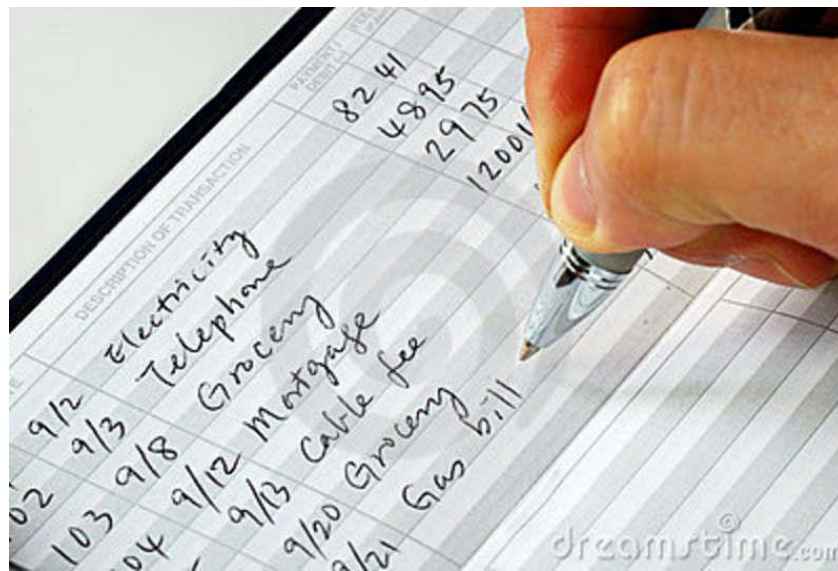 PAYMENT / DEBIT
DESCRIPTION OF TRANSACTION
9/2 Electricity 82 41
02 9/3 Telephone 48 95
103 9/8 Grocery 29 75
04 9/12 Mortgage 1200
9/13 Cable fee
9/20 Grocery
9/21 Gas bill
dreamstime.com